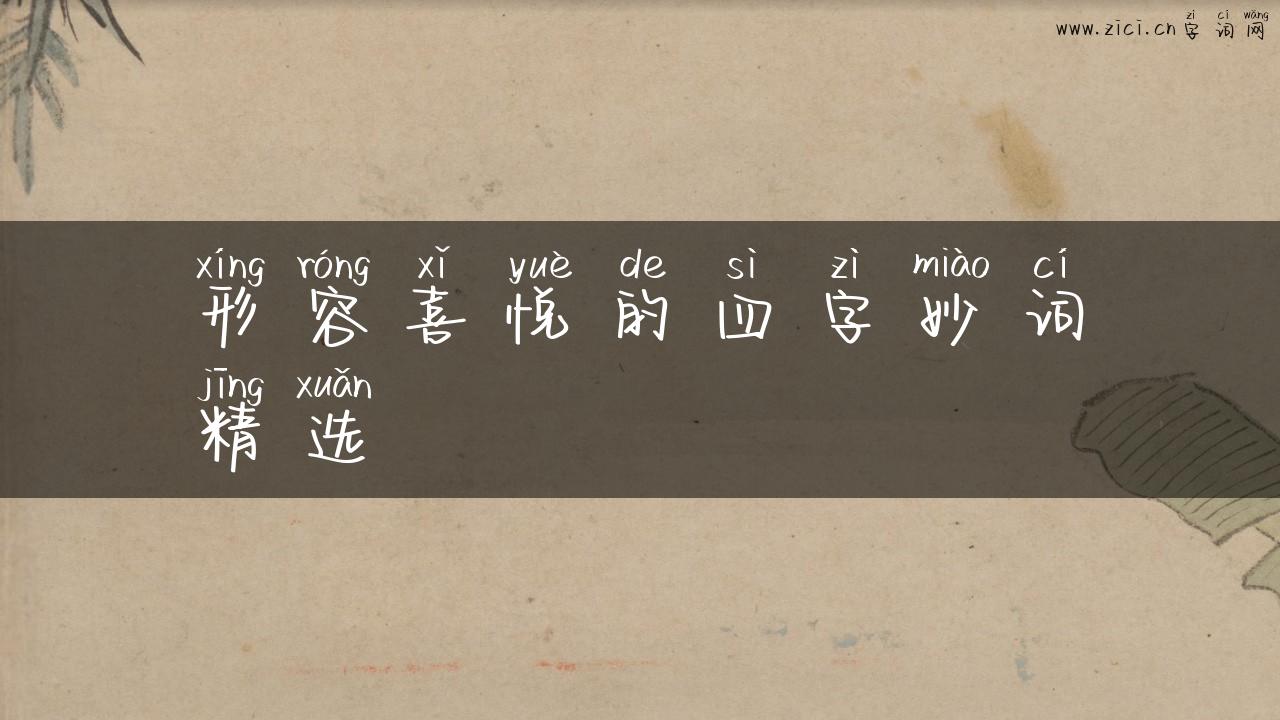 zì cí wǎng
www.zici.cn 字词网
xíng róng xǐ yuè de sì zì miào cí
形容喜悦的四字妙词
jīng xuǎn
精选